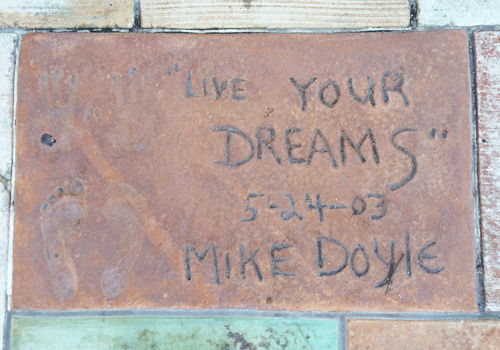 "LivE YOUR
DREAMS"
5-24-03
MiKE DOYlE